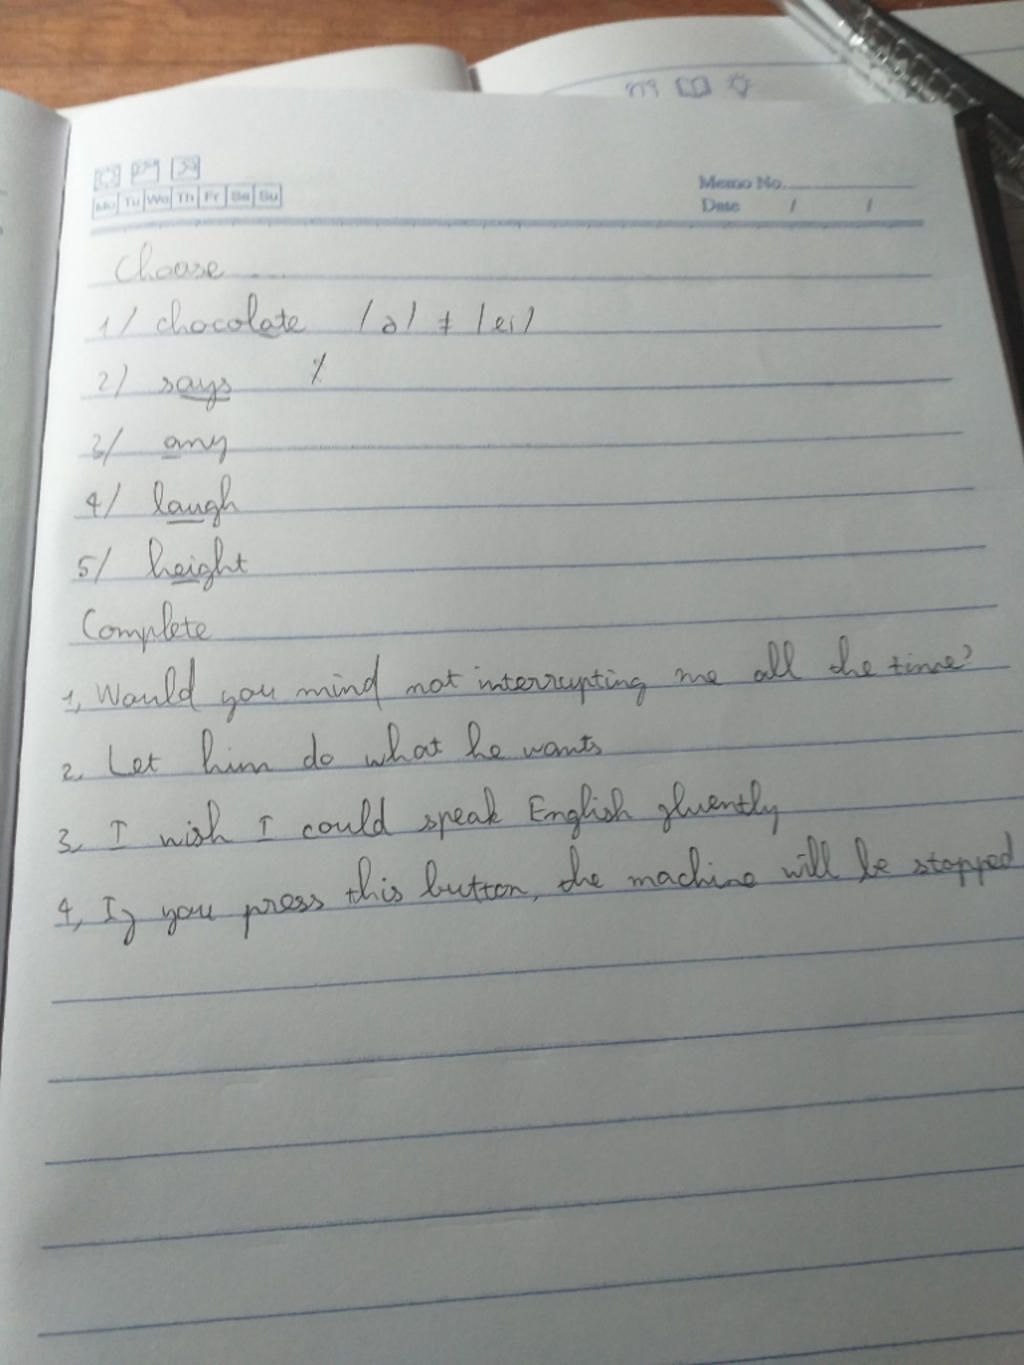 Mo Tu We Th Fr Sa Su
Memo No.
Date / /
Choose ....
1/ chocolate /ə/ ≠ /ei/
2/ says /
3/ any
4/ laugh
5/ height
Complete
1, Would you mind not interrupting me all the time?
2. Let him do what he wants
3. I wish I could speak English fluently
4, If you press this button, the machine will be stopped